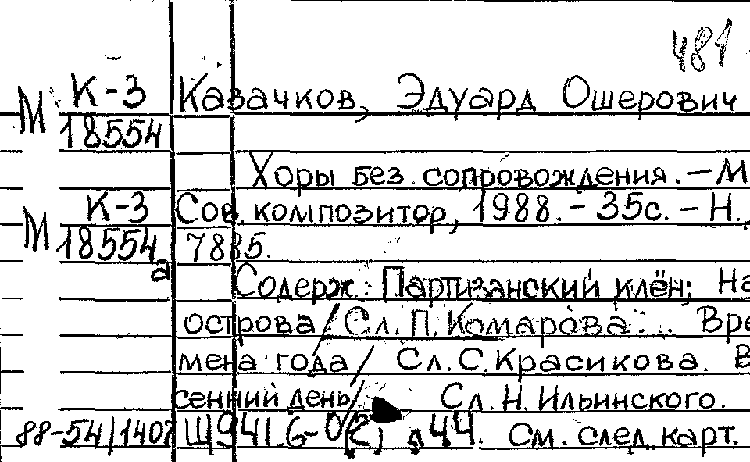 481
М К-3 Казачков, Эдуард Ошерович
18554
Хоры без сопровождения. – М
М К-3 Сов. композитор, 1988. – 35с. – Н.,
18554а 7885.
Содерж.: Партизанский клён; На
острова / Сл. П. Комарова. .. Вре
мена года / Сл. С. Красикова. В
сенний день / Сл. Н. Ильинского.
88-54/1407 Щ941.6-0(2) д44. См. след. карт.